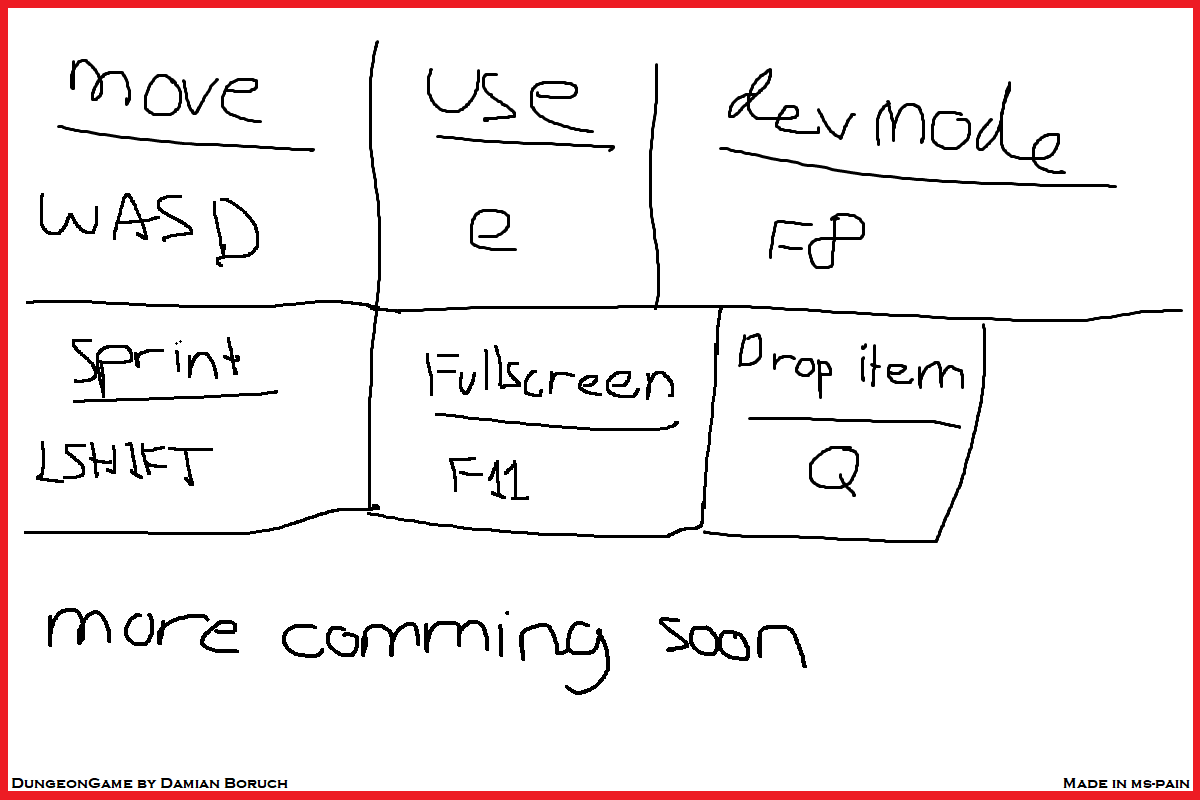 move use dev mode
WASD e F8
Sprint Fullscreen Drop item
LSHIFT F11 Q
more comming soon
DungeonGame by Damian Boruch Made in ms-pain